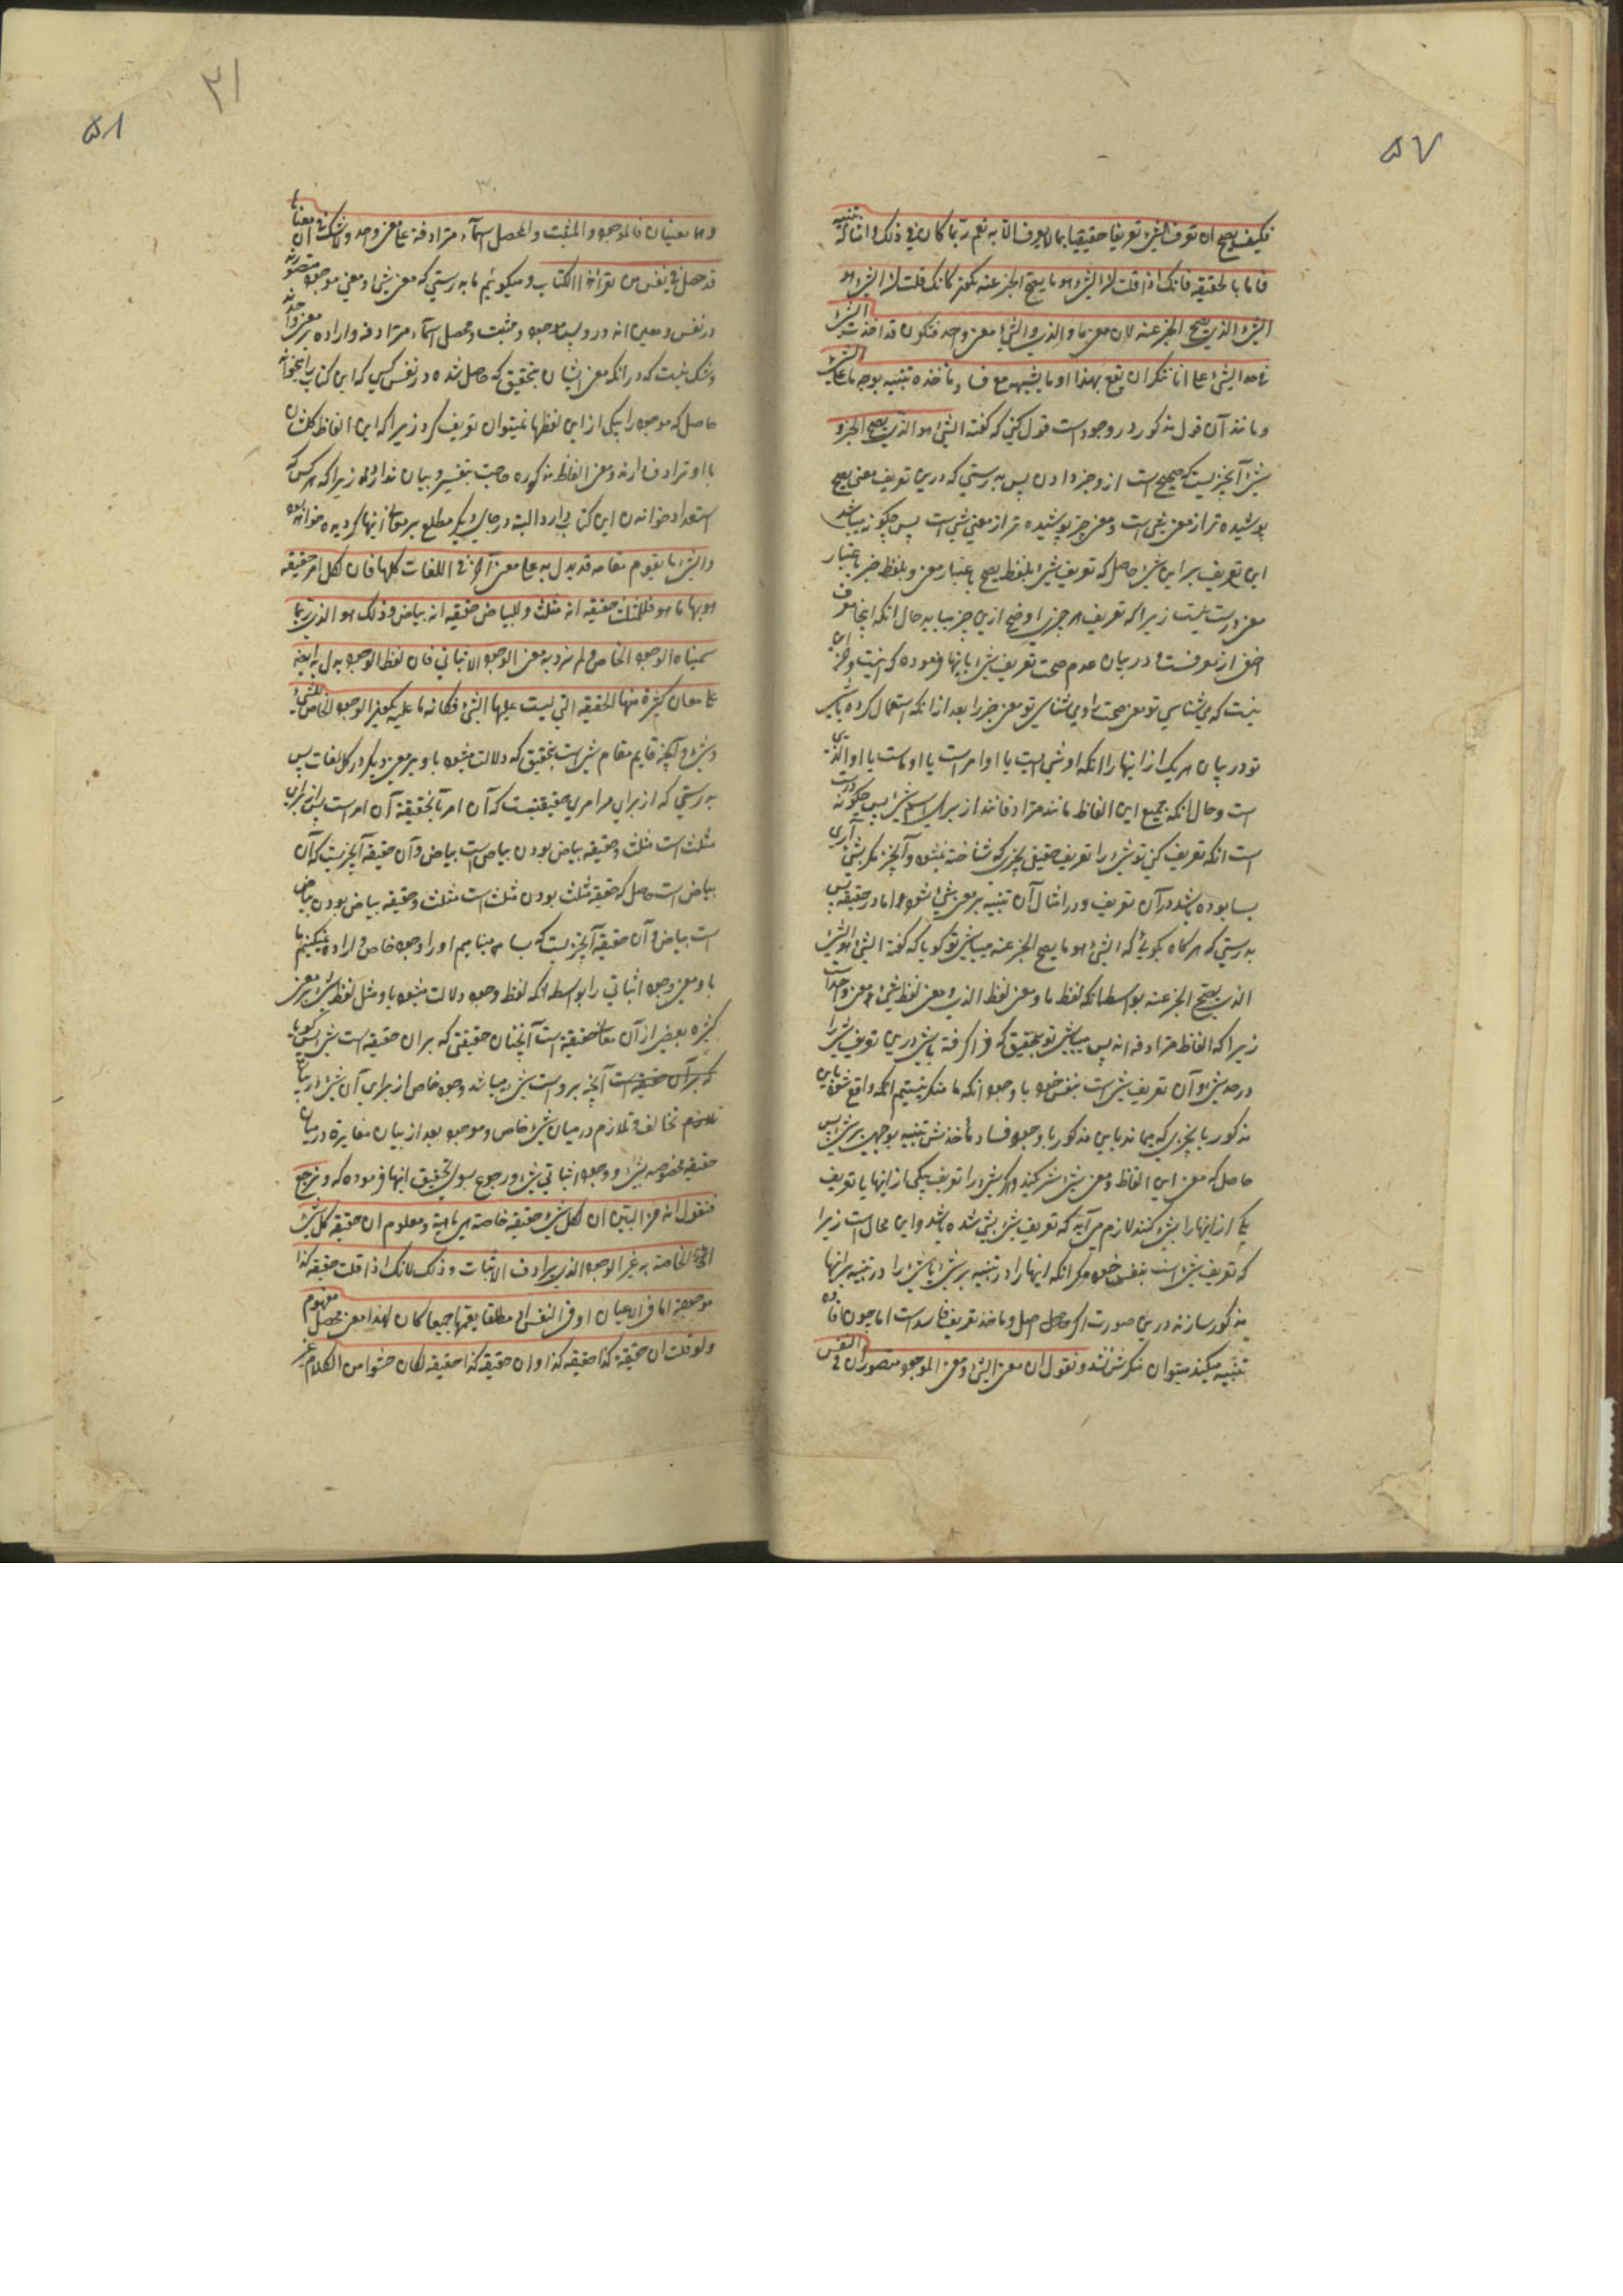 ۵۷
فكيف يصح ان تعرف الشئ تعريفا حقيقيا بما لا يعرف الا به نعم ربما كان في ذلك و امثاله تنبيه
فاما بالحقيقه فانك اذا قلت ان الشئ هو ما يصح الخبر عنه تكون كانك قلت ان الشئ هو
الشئ الذي يصح الخبر عنه لان معنى ما و الذي و الشئ معنى واحد فتكون قد اخذت الشئ
في حد الشئ على انا لا ننكر ان يقع بهذا او ما يشبهه مع فساد مأخذه تنبيه بوجه ما على الشئ
و مانند آن قول مذكور در وجود است قول كسي كه گفته الشئ هو الذي يصح الخبر و
شئ آنچيزيست كه صحيح است ازو خبر دادن پس بدرستي كه درين تعريف معنى يصح
پوشيده تر از معنى شئ است و معنى خبر پوشيده تر از معنى شئ است پس چگونه ميباشد
اين تعريف براي شئ حاصل كه تعريف شئ بلفظ يصح باعتبار معنى و بلفظ خبر باعتبار
معنى درست نيست زيرا كه تعريف هر چيزي اوضح ازين چيز ميبايد حال انكه اينجا معرف
اخفى از معرفست و در بيان عدم صحت تعريف شئ باينها فرموده كه نيست و جز اين
نيست كه مي شناسي تو معنى صحت را و مي شناسي تو معنى خبر را بعد از انكه استعمال كرده باشي
تو در بيان هر يك از اينها را انكه او شئ است يا او امر است يا او ما است يا او الذي
است و حال انكه جميع اين الفاظ مانند مترادفانند از براي اسم شئ پس چگونه درست
است انكه تعريف كني تو شئ را تعريف حقيقي بچيزي كه شناخته نميشود آنچيز مگر بشئ آري
بسا بوده باشد در آن تعريف و در امثال آن تنبيه بر معنى شئ نشود و اما در حقيقه پس
بدرستي كه هر گاه بگوئي كه الشئ هو ما يصح الخبر عنه ميباشي تو گويا كه گفته الشئ هو الشئ
الذي يصح الخبر عنه بواسطه انكه لفظ ما و معنى لفظ الذي و معنى لفظ شئ معنى واحد است
زيرا كه الفاظ مترادفه اند پس ميباشي تو بتحقيق كه فرا گرفته باشي درين تعريف شئ را
در حد شئ و آن تعريف شئ است بنفس خود با وجود انكه ما منكر نيستيم انكه واقع شود باين
مذكور يا بچيزي كه ميماند باين مذكور با وجود فساد مأخذش تنبيه بوجهي بر شئ پس
حاصل كه معنى اين الفاظ و معنى شئ شئ ميكنند و اگر شئ را تعريف بيكي از اينها يا تعريف
يكي از اينها را بشئ كنند لازم مي آيد كه تعريف شئ بشئ شده باشد و اين محال است زيرا
كه تعريف شئ است بنفس خود مگر انكه اينها را در تنبيه بر شئ يا شئ را در تنبيه بر اينها
مذكور سازند درين صورت اگر چه اصل و ماخذ تعريف فاسد است اما چون افاده
تنبيه ميكند ميتوان منكرش نشد و نقول ان معنى الشئ و معنى الموجود متصوران في النفس
۵۸
۳۱
۳۰
و هما معنيان فالموجود و المثبت و المحصل اسماء مترادفة على معنى واحد و لا شك في ان معناها
قد حصل في نفس من يقرأ هذا الكتاب و ميگوئيم ما بدرستي كه معنى شئ و معنى موجود متصورند
در نفس و معنى اند دو و پس موجود و مثبت و محصل اسماء مترادفه و اراده بر معنى واحدند
و شك نيست كه در انكه معنى ايشان بتحقيق كه حاصل شده در نفس كسي كه اين كتاب را بخواند
حاصل كه موجود را بيكي از اين لفظها نميتوان تعريف كرد زيرا كه اين الفاظ كلشان
با او ترادف دارند و معنى الفاظ مذكوره حاجت بتفسير و بيان ندارد زيرا كه هر كس كه
استعداد خواندن اين كتاب دارد البته در جاي ديگر مطلع بر معاني اينها گرديده خواهد بود
و الشئ ما يقوم مقامه قد يدل به على معنى آخر في اللغات كلها فان لكل امر حقيقه
هو بها ما هو فللمثلث حقيقه انه مثلث و للبياض حقيقه انه بياض و ذلك هو الذي ربما
سميناه الوجود الخاص و لم نرد به معنى الوجود الاثباتي فان لفظ الوجود يدل به ايضا
على معان كثيرة منها الحقيقه التي ليست عليها الشئ فكانه ما عليه يكون الوجود الخاص للشئ
و شئ و آنچه قايم مقام شئ است بتحقيق كه دلالت ميشود باو بر معنى ديگر در كل لغات پس
بدرستي كه از براي هر امري حقيقتيست كه آن امر بآنحقيقة آن امر است پس از براي
مثلث است مثلث و حقيقه بياض بودن بياض است بياض و آن حقيقه آنچيزيست كه آن
بياض است حاصل كه حقيقه مثلث بودن مثلث است مثلث و حقيقه بياض بودن بياض
است بياض و آن حقيقه آنچيزيست كه بسا مي ناميم او را وجود خاص و اراده نميكنيم ما
باو معنى وجود اثباتي را بواسطه انكه لفظ وجود دلالت ميشود باو مثل لفظ شئ بر معني
كثيره بعضي از آن معاني حقيقه است آنچنان حقيقتي كه بر ان حقيقه است شئ پس گويا
كه بر آن حقيقه است آنچه بر اوست شئ ميباشد وجود خاص از براي آن شئ در بيان
تلازم تخالف و تلازم در ميان شئ خاص و موجود بعد از بيان مغايره در ميان
حقيقه مخصوصه بشئ و وجود اثباتي شئ و رجوع بسوي تحقيق اينها فرموده كه و نرجع
فنقول انه من البين ان لكل شئ حقيقة خاصة هي ماهيته و معلوم ان حقيقه كل شئ
الخاصة به غير الوجود الذي يرادف الاثبات و ذلك لانك اذا قلت حقيقه كذا
موجودة اما في الاعيان او في النفس او مطلقا يعمها جميعا كان لهذا معنى محصل مفهوم
و لو قلت ان حقيقة كذا حقيقه كذا او ان حقيقه كذا حقيقه لكان حشوا من الكلام غير